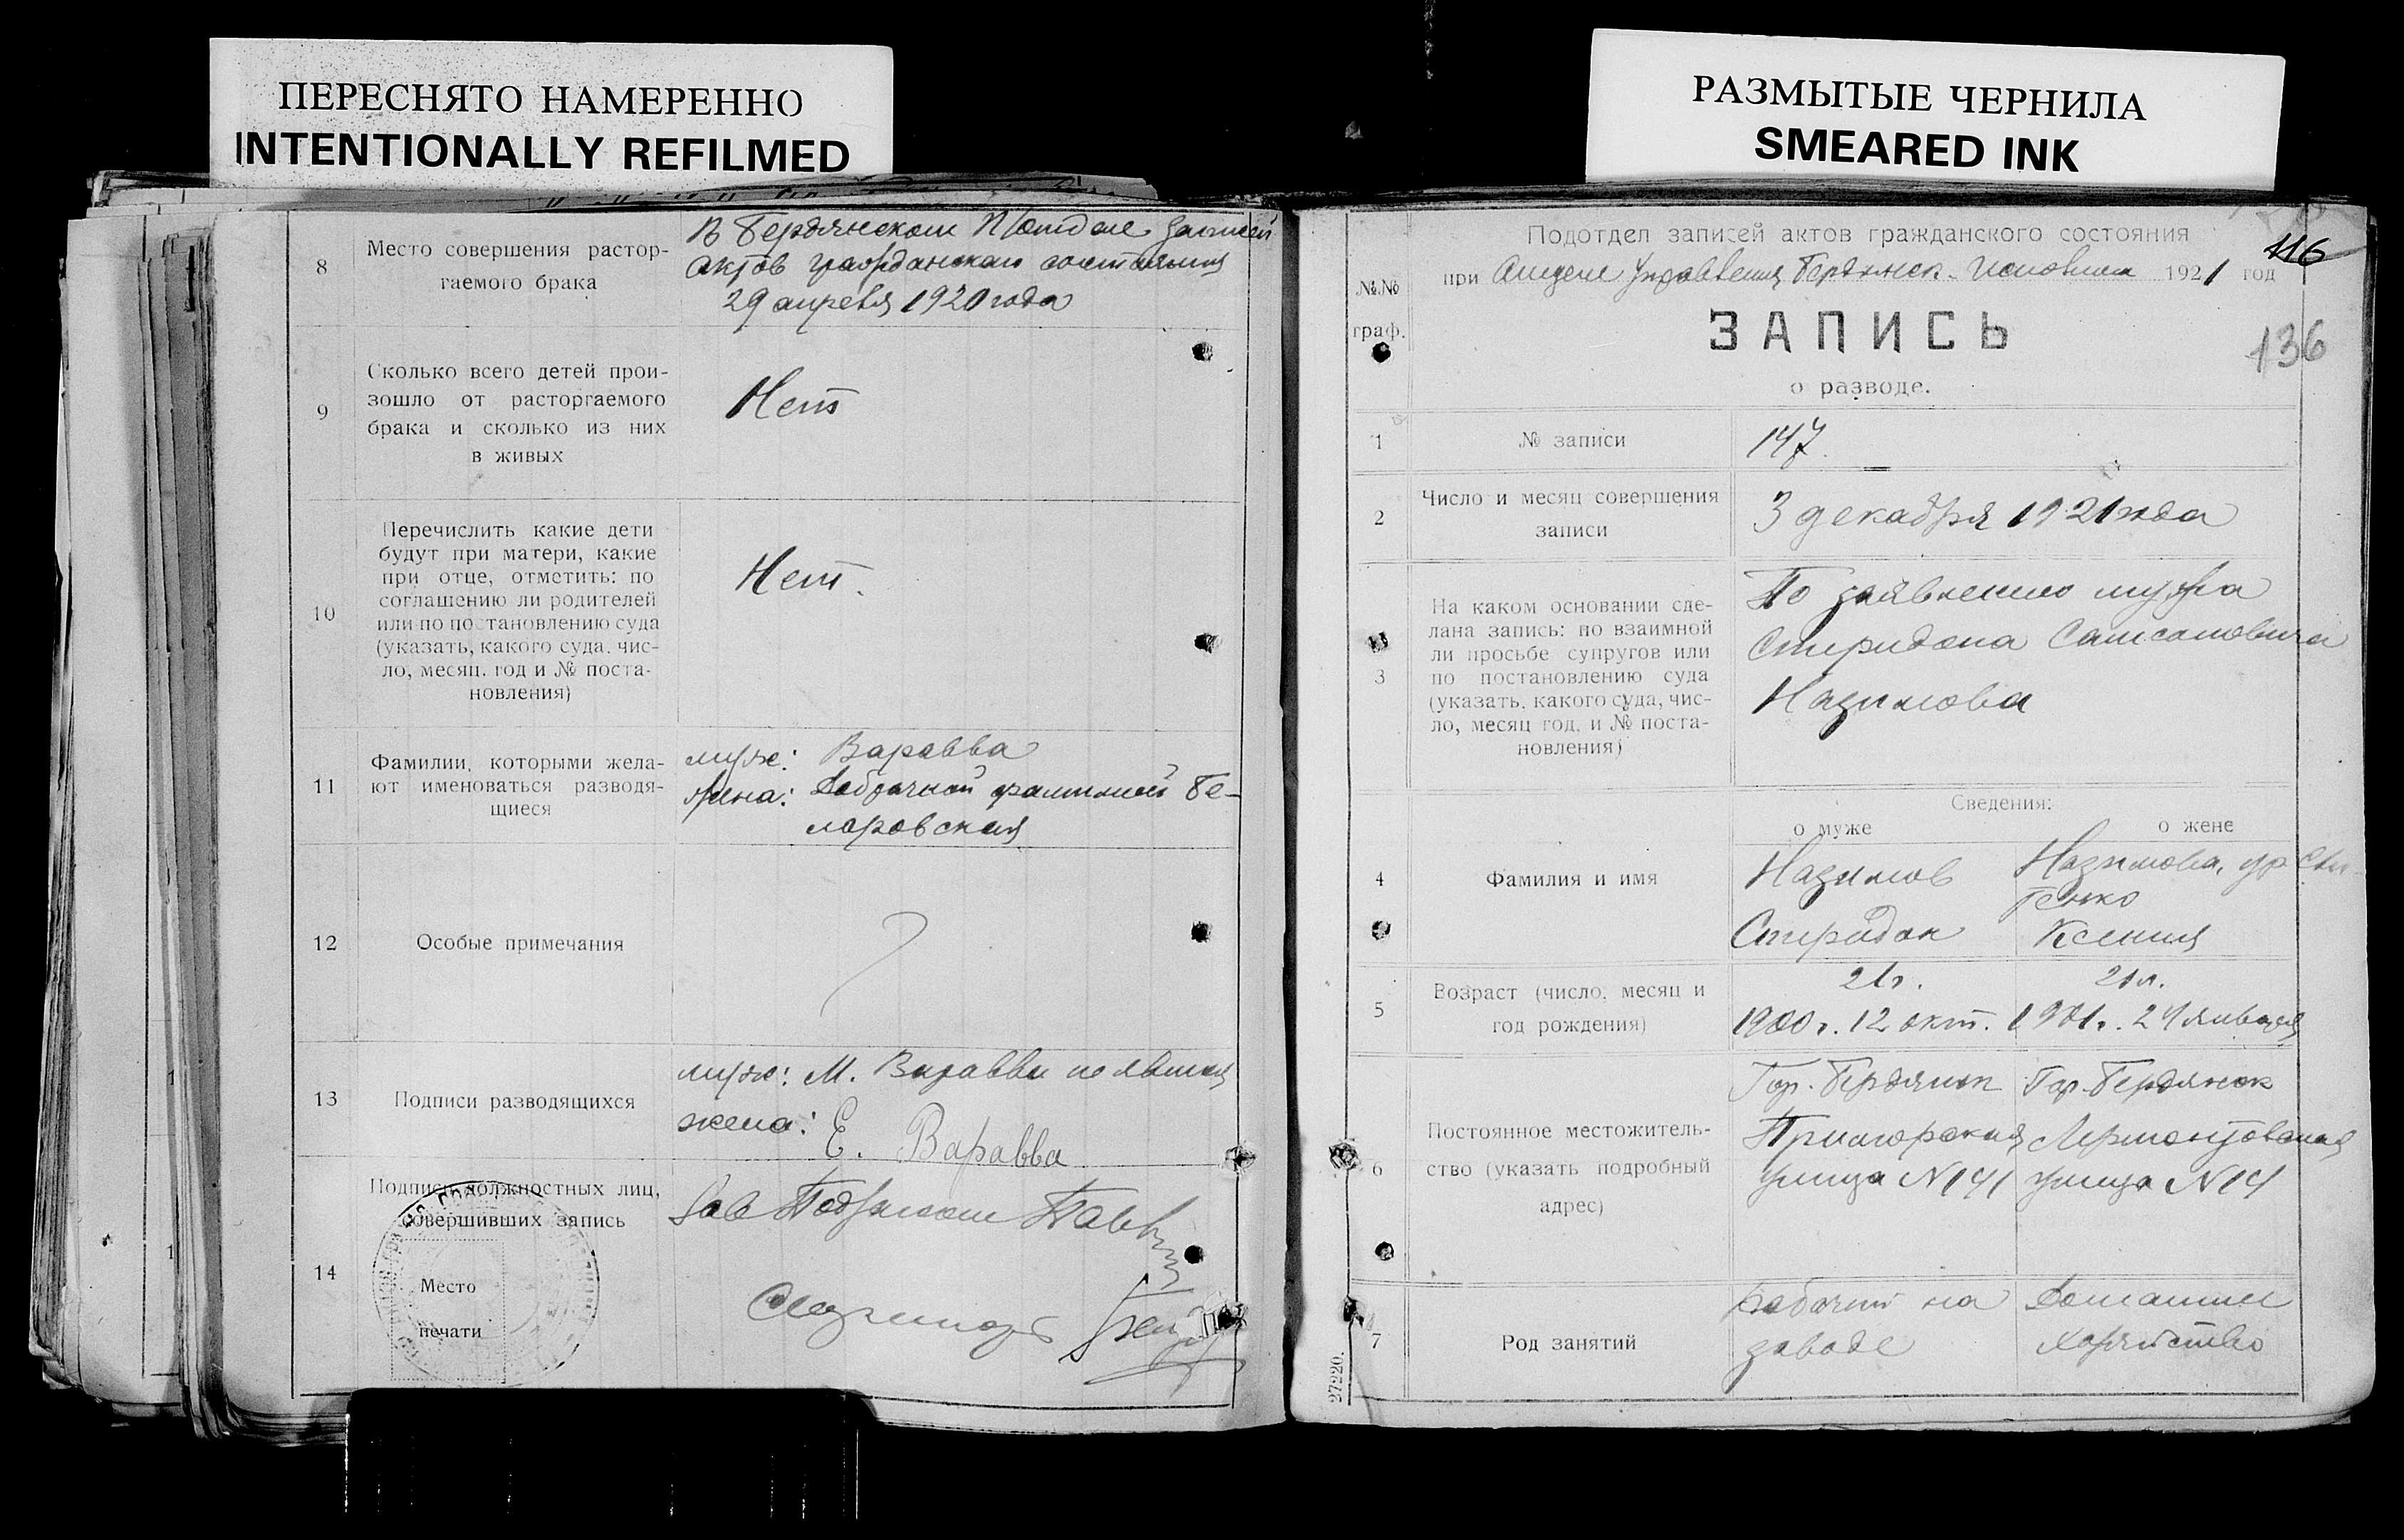 ПЕРЕСНЯТО НАМЕРЕННО
INTENTIONALLY REFILMED
РАЗМЫТЫЕ ЧЕРНИЛА
SMEARED INK
8
Место совершения растор-
гаемого брака
В Бердянском П/отделе записей
актов гражданского состояния
29 апреля 1920 года
9
Сколько всего детей прои-
зошло от расторгаемого
брака и сколько из них
в живых
Нет
10
Перечислить какие дети
будут при матери, какие
при отце, отметить: по
соглашению ли родителей
или по постановлению суда
(указать, какого суда, чис-
ло, месяц, год и № поста-
новления)
Нет.
11
Фамилии, которыми жела-
ют именоваться разводя-
щиеся
муж: Варавва
жена: Добрачной фамилией Бе-
ларовская
12
Особые примечания
13
Подписи разводящихся
муж: М. Варавва не явился
жена: Е. Варавва
14
Подписи должностных лиц,
совершивших запись
Место
печати
Зав
Подотдел записей актов гражданского состояния
116
№№
граф.
при Отделе Управления Бердянск. 1921 год
ЗАПИСЬ
136
о разводе.
1
№ записи
147.
2
Число и месяц совершения
записи
3 декабря 1921 года
3
На каком основании сде-
лана запись: по взаимной
ли просьбе супругов или
по постановлению суда
(указать, какого суда, чис-
ло, месяц год, и № поста-
новления)
По заявлению мужа
Спиридона Самсоновича
Назимова
Сведения:
о муже
о жене
4
Фамилия и имя
Назимов
Спиридон
Назимова, ур.
тенко
Ксения
5
Возраст (число, месяц и
год рождения)
21 г.
1900 г. 12 окт.
21 л.
1901 г. 24 января
6
Постоянное местожитель-
ство (указать подробный
адрес)
Гор. Бердянск
Приморская
улица N 141
Гор. Бердянск
Лермонтовская
улица N 14
7
Род занятий
Рабочий на
заводе
Домашнее
хозяйство
27220.